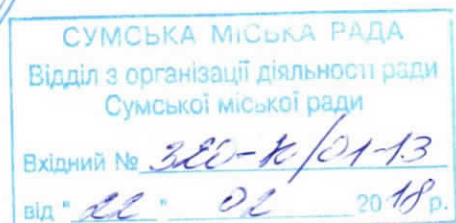 СУМСЬКА МІСЬКА РАДА
Відділ з організації діяльності ради
Сумської міської ради
Вхідний № 320-К/01-13
від "22" 02 2018 р.